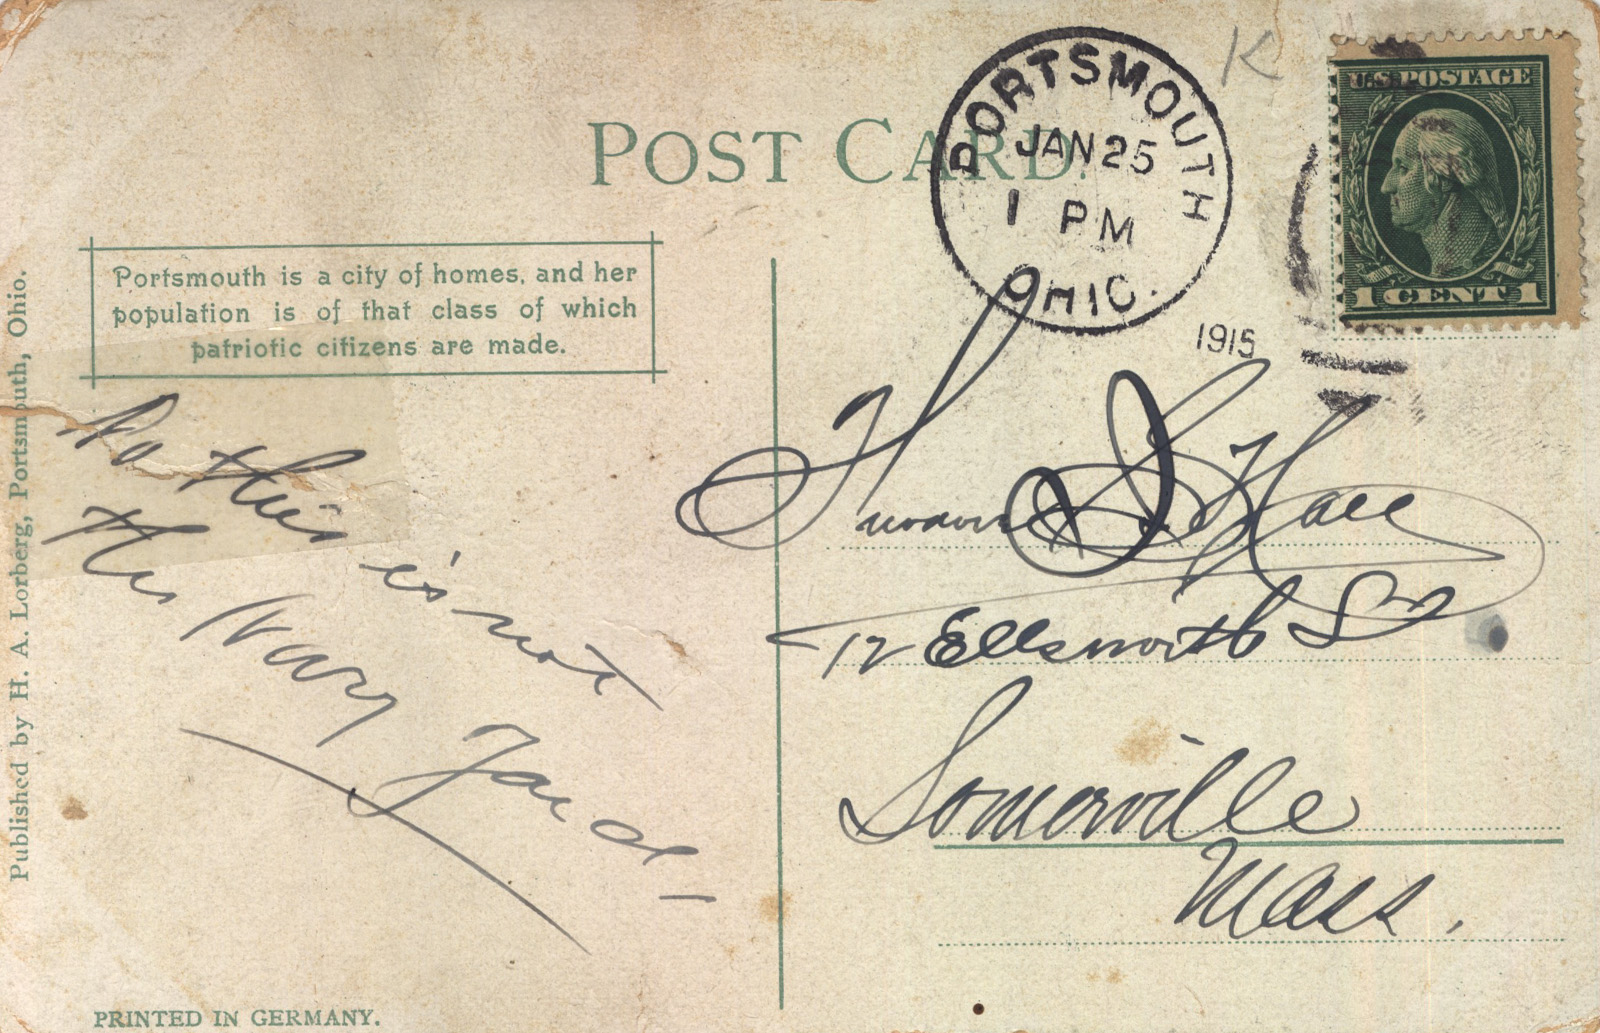 POST CARD.
PORTSMOUTH
JAN 25
1 PM
OHIO.
1915
K
U.S. POSTAGE
1 CENT 1
Portsmouth is a city of homes, and her
population is of that class of which
patriotic citizens are made.
Published by H. A. Lorberg, Portsmouth, Ohio.
No this
is not
the Navy Yard
S Hall
12 Ellsworth St
Somerville
Mass.
PRINTED IN GERMANY.